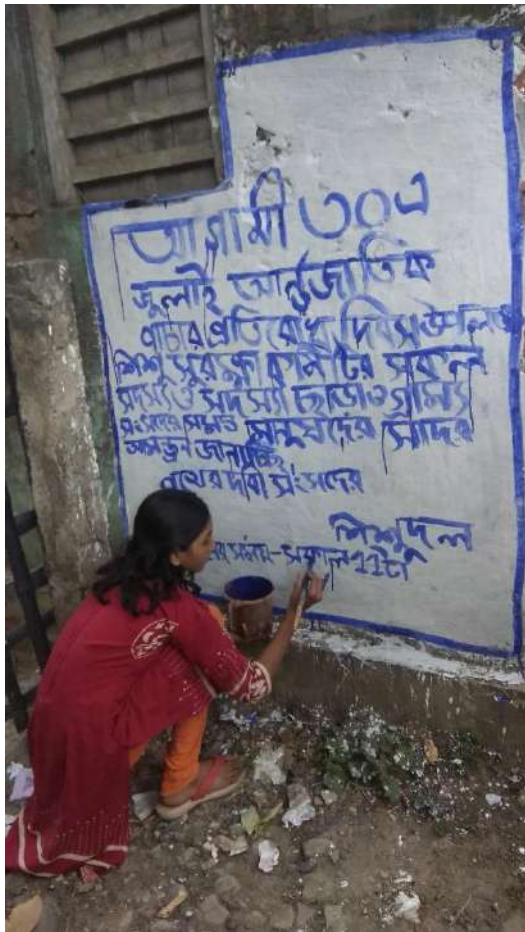 আগামী ৩০এ
জুলাই আর্ন্তজাতিক
পাচার প্রতিরোধ দিবস উপলক্ষে
শিশু সুরক্ষা কমিটির সকল
সদস্য ও সদস্যা ছাড়াও গ্রাম্য
সংসদের সমস্ত মানুষদের সাদর
আমন্ত্রন জানাচ্ছি
পথের দাবী সংসদের
শিশুদল
সময় - সকাল ১১টা